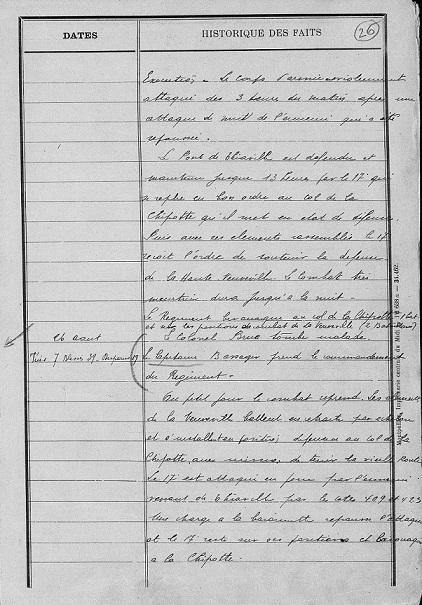 DATES
HISTORIQUE DES FAITS
26
Exécution. - Le corps d'armée violemment
attaqué dès 3 heures du matin après une
attaque de nuit de l'ennemi qui a été
repoussée.
Le Pont de Thiaville est défendu et
maintenu jusque 13 heures par le 17e qui
se replie en bon ordre au col de la
Chipotte qu'il met en état de défense.
Puis avec ces éléments rassemblés le 17
reçoit l'ordre de soutenir la défense
de la Haute Neuveville. Le combat très
meurtrier dura jusqu'à la nuit.
Le Régiment bivouaque au col de la Chipotte
et les positions de la Neuveville (2e Baton)
26 août
Le Colonel tombe malade.
Tués 7 Blessés 39
Le Capitaine prend le commandement
du Régiment.
Au petit jour le combat reprend. Les éléments
de la Neuveville battent en retraite par échelon
et s'installent en position défensive au col de la
Chipotte avec mission de tenir la vieille Route
Le 17e est attaqué en force par l'ennemi
venant de Thiaville par les cotes 409 et 423
Une charge à la baïonnette repousse l'attaque
et le 17 reste sur ses positions et bivouaque
à la Chipotte.
Montpellier, Imprimerie centrale du Midi